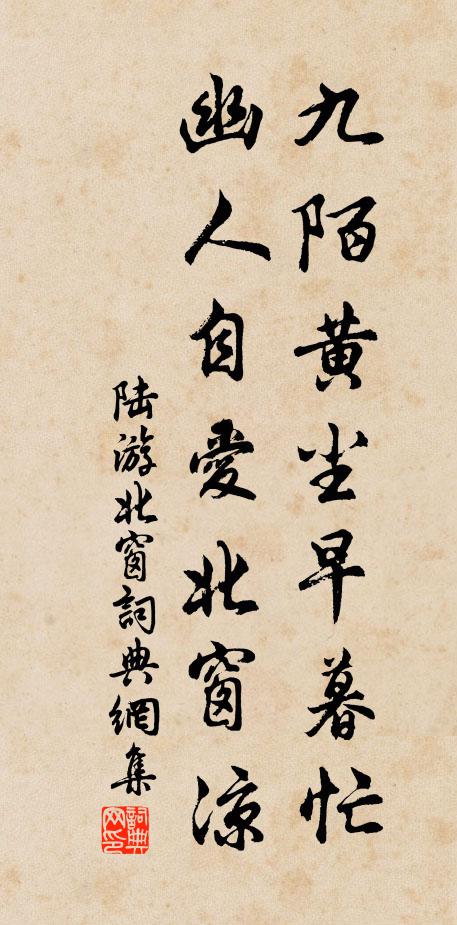 九陌黄尘早暮忙
幽人自愛北窗涼
陆游北窗詞典網集
詞典网印